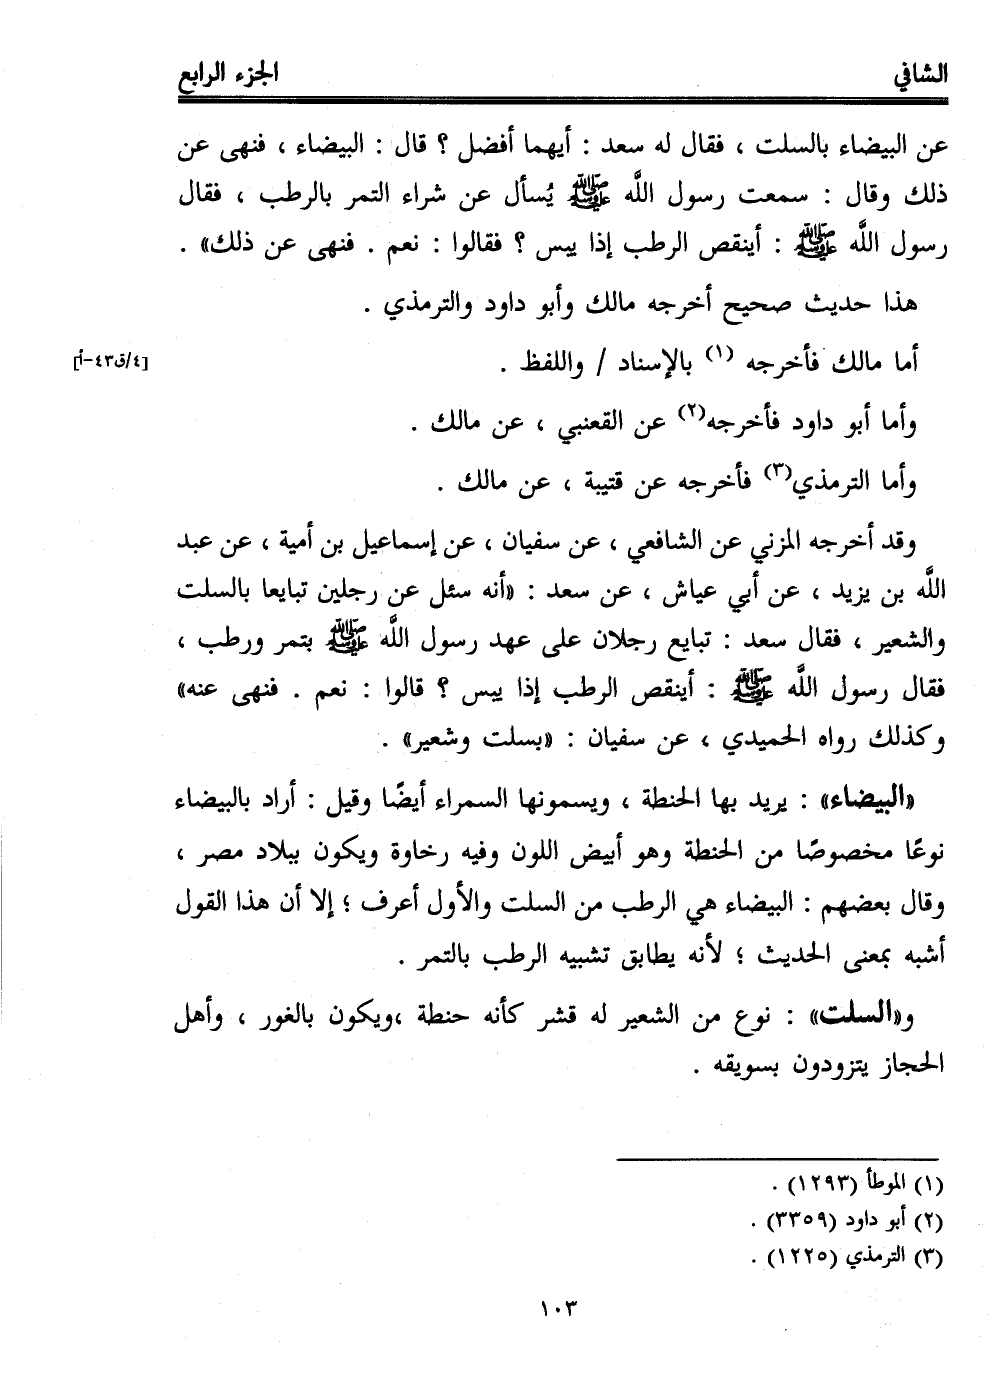 الشافي الجزء الرابع
عن البيضاء بالسلت ، فقال له سعد : أيهما أفضل ؟ قال : البيضاء ، فنهى عن
ذلك وقال : سمعت رسول اللَّه ﷺ يُسأل عن شراء التمر بالرطب ، فقال
رسول اللَّه ﷺ : أينقص الرطب إذا يبس ؟ فقالوا : نعم . فنهى عن ذلك» .
هذا حديث صحيح أخرجه مالك وأبو داود والترمذي .
أما مالك فأخرجه (١) بالإسناد / واللفظ .
[٤/ق٤٣-أ]
وأما أبو داود فأخرجه(٢) عن القعنبي ، عن مالك .
وأما الترمذي(٣) فأخرجه عن قتيبة ، عن مالك .
وقد أخرجه المزني عن الشافعي ، عن سفيان ، عن إسماعيل بن أمية ، عن عبد
اللَّه بن يزيد ، عن أبي عياش ، عن سعد : «أنه سئل عن رجلين تبايعا بالسلت
والشعير ، فقال سعد : تبايع رجلان على عهد رسول اللَّه ﷺ بتمر ورطب ،
فقال رسول اللَّه ﷺ : أينقص الرطب إذا يبس ؟ قالوا : نعم . فنهى عنه»
وكذلك رواه الحميدي ، عن سفيان : «بسلت وشعير» .
«البيضاء» : يريد بها الحنطة ، ويسمونها السمراء أيضًا وقيل : أراد بالبيضاء
نوعًا مخصوصًا من الحنطة وهو أبيض اللون وفيه رخاوة ويكون ببلاد مصر ،
وقال بعضهم : البيضاء هي الرطب من السلت والأول أعرف ؛ إلا أن هذا القول
أشبه بمعنى الحديث ؛ لأنه يطابق تشبيه الرطب بالتمر .
و«السلت» : نوع من الشعير له قشر كأنه حنطة ،ويكون بالغور ، وأهل
الحجاز يتزودون بسويقه .
(١) الموطأ (١٢٩٣) .
(٢) أبو داود (٣٣٥٩) .
(٣) الترمذي (١٢٢٥) .
١٠٣